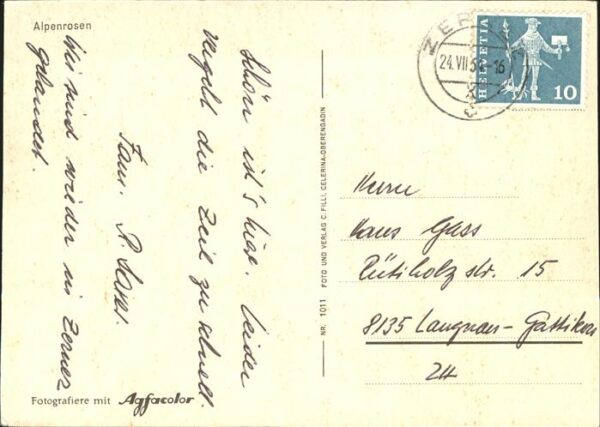 Alpenrosen
Schön ist's hier. Leider
vergeht die Zeit zu schnell.
Fam. P.
Wir sind wieder in Zernez
gelandet.
Fotografiere mit Agfacolor
NR. 1011 FOTO UND VERLAG C. FILLI, CELERINA-OBERENGADIN
ZER
24.VII 6 -16
HELVETIA
10
Herrn
Hans Gass
Rütiholzstr. 15
8135 Langnau-Gattikon
ZH